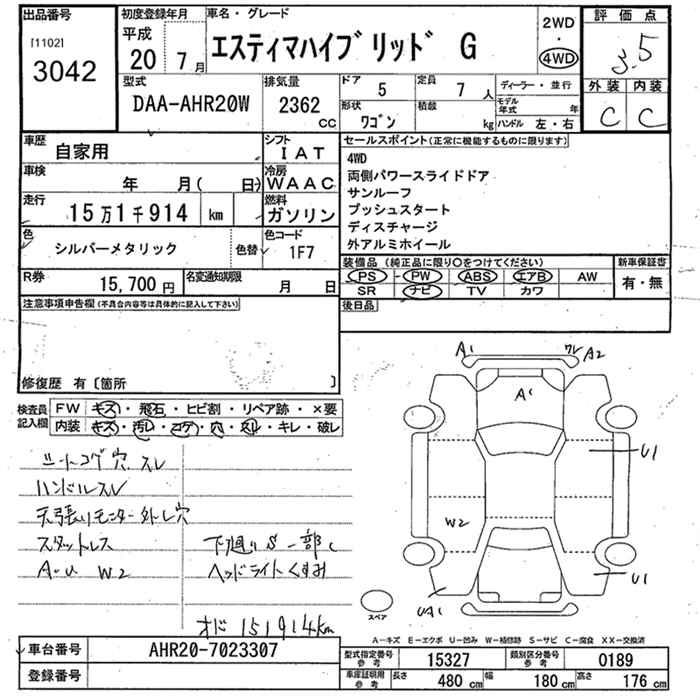 出品番号
[1102]
3042
初度登録年月
平成
20 年 7 月
車名・グレード
エスティマハイブリッド G
2WD
・
4WD
評価点
3.5
外装 内装
C C
型式
DAA-AHR20W
排気量
2362 CC
ドア
5
定員
7 人
形状
ワゴン
積載
kg
ディーラー・並行
モデル年式 年
ハンドル 左・右
車歴
自家用
シフト
IAT
車検
年 月( 日)
冷房
WAAC
走行
15万1千914 km
燃料
ガソリン
色
シルバーメタリック
色替
色コード
1F7
R券
15,700 円
名変通知期限
月 日
セールスポイント(正常に機能するものに限ります)
4WD
両側パワースライドドア
サンルーフ
プッシュスタート
ディスチャージ
外アルミホイール
装備品(純正品に限り○をつけてください)
PS PW ABS エアB AW
SR ナビ TV カワ
新車保証書
有・無
後日品
注意事項申告欄(不具合内容等は具体的に記入して下さい)
修復歴 有〔箇所 〕
検査員記入欄
FW キズ・飛石・ヒビ割・リペア跡・×要
内装 キズ・汚レ・コゲ・穴・スレ・キレ・破レ
シートコゲ穴スレ
ハンドルスレ
天張りモニター外し穴
スタットレス
下廻りS一部C
A-U W2
ヘッドライトくすみ
オド 151914km
A1
ワレ A2
A1
U1
W2
U1
UA1
スペア
A-キズ E-エクボ U-凹み W-補修跡 S-サビ C-腐食 XX-交換済
車台番号
AHR20-7023307
登録番号
型式指定番号参考
15327
類別区分番号参考
0189
車庫証明用参考
長さ 480 cm
幅 180 cm
高さ 176 cm